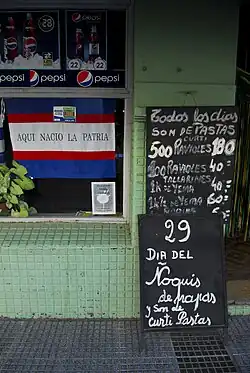 pepsi
pepsi
22
22
pepsi
pepsi
pepsi
AQUI NACIO LA PATRIA
Todos los dias
SOM DE PASTAS
CURTI
500 RAVIOLES 180
100 RAVIOLES 40=
TALLARINES
1K DE YEMA 40=
1/2K DE YEMA 60=
29
DIA DEL
Ñoquis
de papas
y Som de
CURTI Pastas